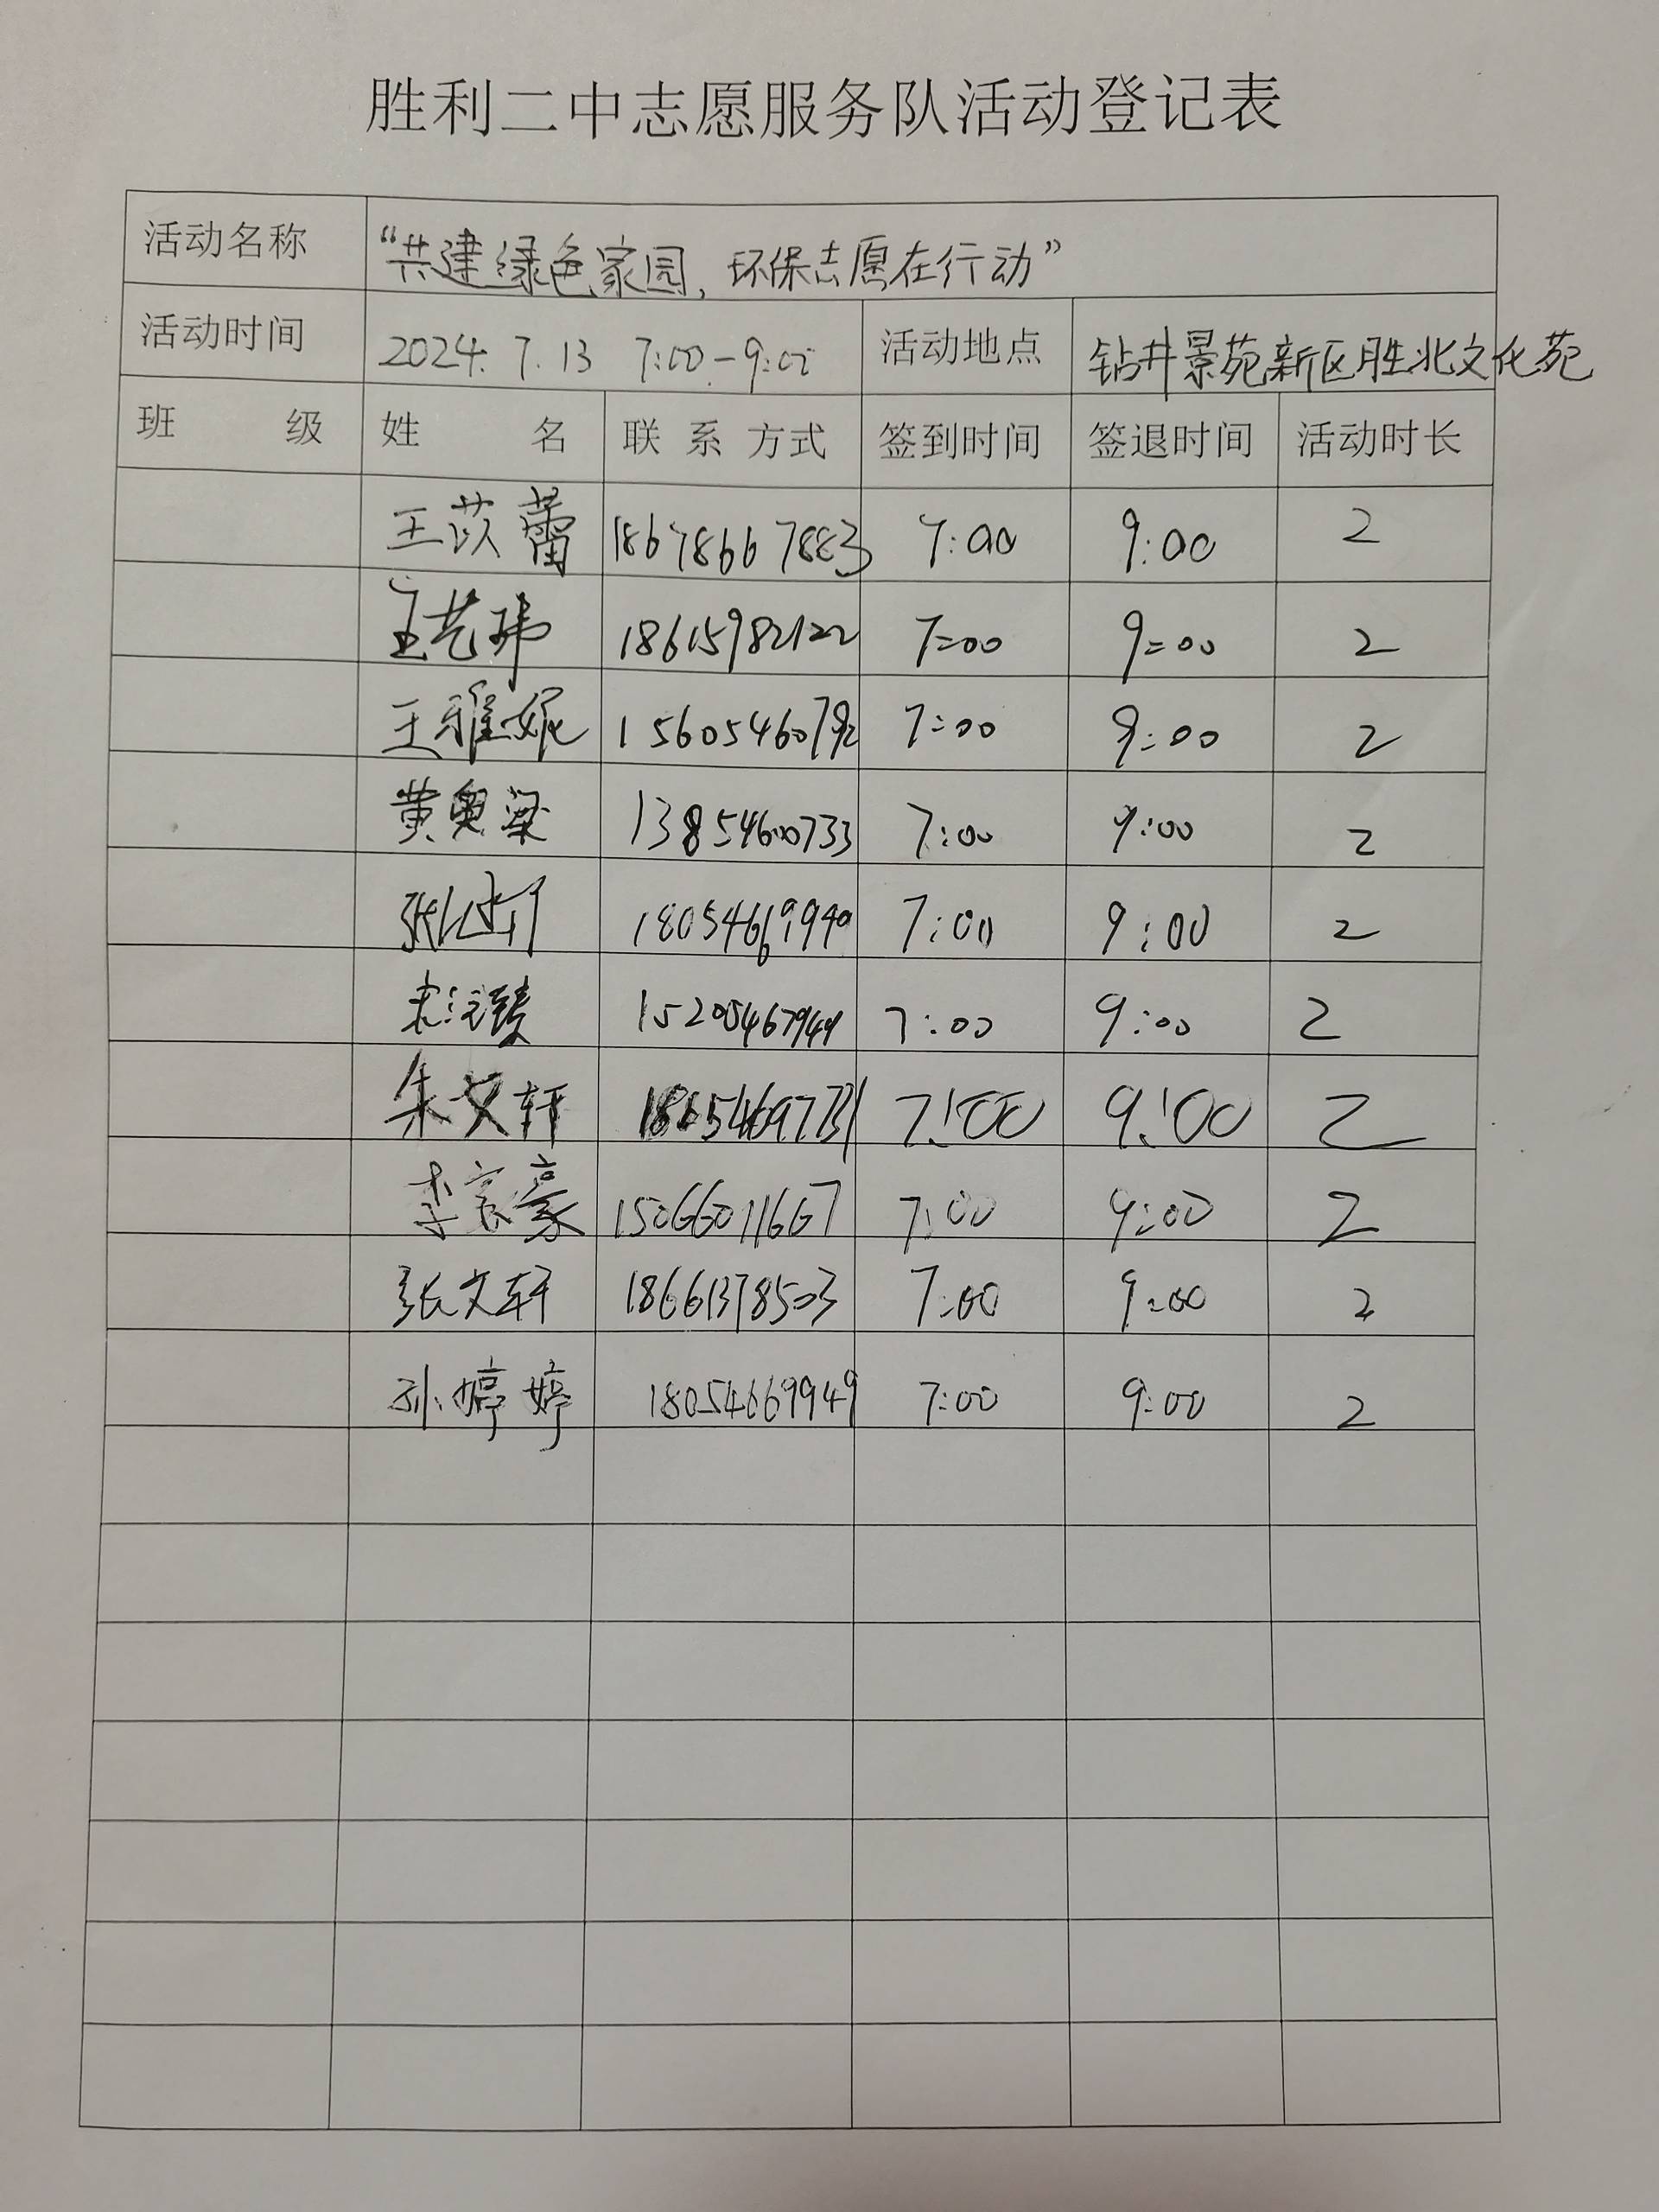 胜利二中志愿服务队活动登记表
活动名称 “共建绿色家园，环保志愿在行动”
活动时间 2024.7.13 7:00-9:00 活动地点 钻井景苑新区胜北文化苑
班 级 姓 名 联系方式 签到时间 签退时间 活动时长
王苡蕾 18678667883 7:00 9:00 2
王艺玮 18615982122 7:00 9:00 2
王雅妮 15605460792 7:00 9:00 2
黄奥梁 13854600733 7:00 9:00 2
7:00 9:00 2
7:00 9:00 2
朱文轩 7:00 9:00 2
李宸豪 15066011667 7:00 9:00 2
张文轩 18661378503 7:00 9:00 2
孙婷婷 18054669949 7:00 9:00 2